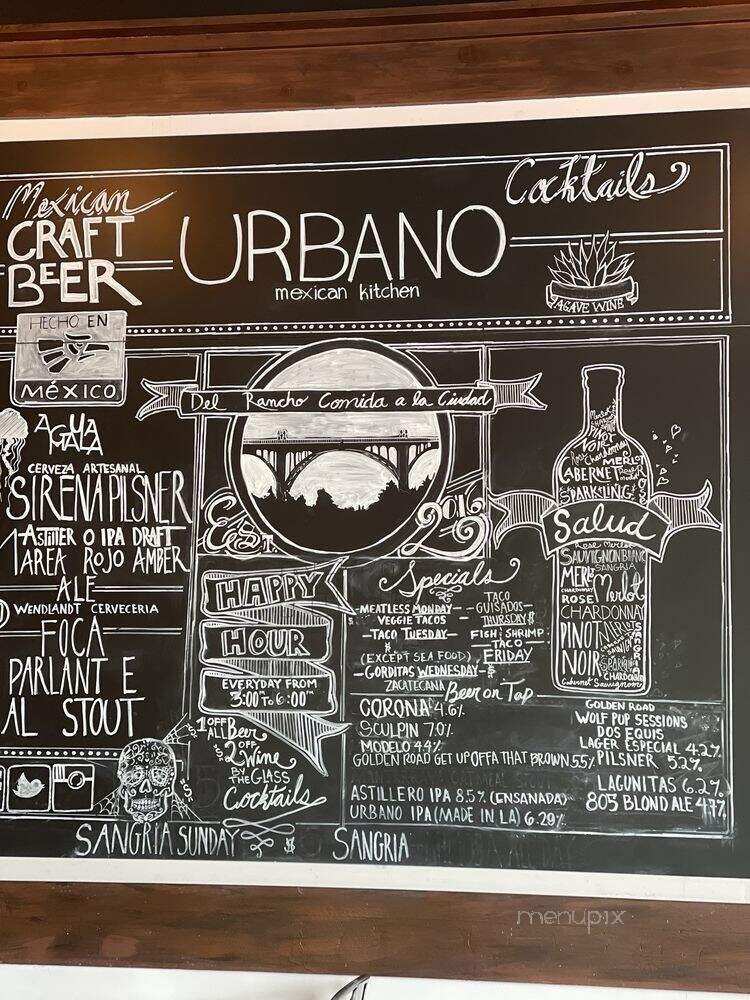 Mexican
CRAFT
BEER
URBANO
mexican kitchen
Cocktails
AGAVE WINE
HECHO EN
MÉXICO
Del Rancho Comida a la Ciudad
Est. 2016
AGUA MALA
CERVEZA ARTESANAL
SIRENA PILSNER
ASTILLERO IPA DRAFT
MAREA ROJO AMBER
ALE
WENDLANDT CERVECERIA
FOCA
PARLANTE
AL STOUT
HAPPY
HOUR
EVERYDAY FROM
3:00 TO 6:00PM
1 OFF
ALL Beer
2 OFF
Wine
BY THE GLASS
Cocktails
Specials
MEATLESS MONDAY
VEGGIE TACOS
TACO TUESDAY
(EXCEPT SEA FOOD)
GORDITAS WEDNESDAY
ZACATECANA
TACO
GUISADOS
THURSDAY
FISH & SHRIMP
TACO
FRIDAY
Beer on Tap
CORONA 4.6%
SCULPIN 7.0%
MODELO 4.4%
GOLDEN ROAD GET UP OFFA THAT BROWN 5.5%
ASTILLERO IPA 8.5% (ENSANADA)
URBANO IPA (MADE IN LA) 6.29%
GOLDEN ROAD
WOLF PUP SESSIONS
DOS EQUIS
LAGER ESPECIAL 4.2%
PILSNER 5.2%
LAGUNITAS 6.2%
805 BLOND ALE 4.7%
PINOT
NOIR
Rose Chardonnay
MERLOT
CABERNET
SPARKLING
Salud
Rose Merlot
SAUVIGNON BLANC
SANGRIA
Merlot
ROSE
CHARDONNAY
PINOT
NOIR
SANGRIA
CHARDONNAY
Cabernet Sauvignon
SANGRIA SUNDAY
SANGRIA
menupix